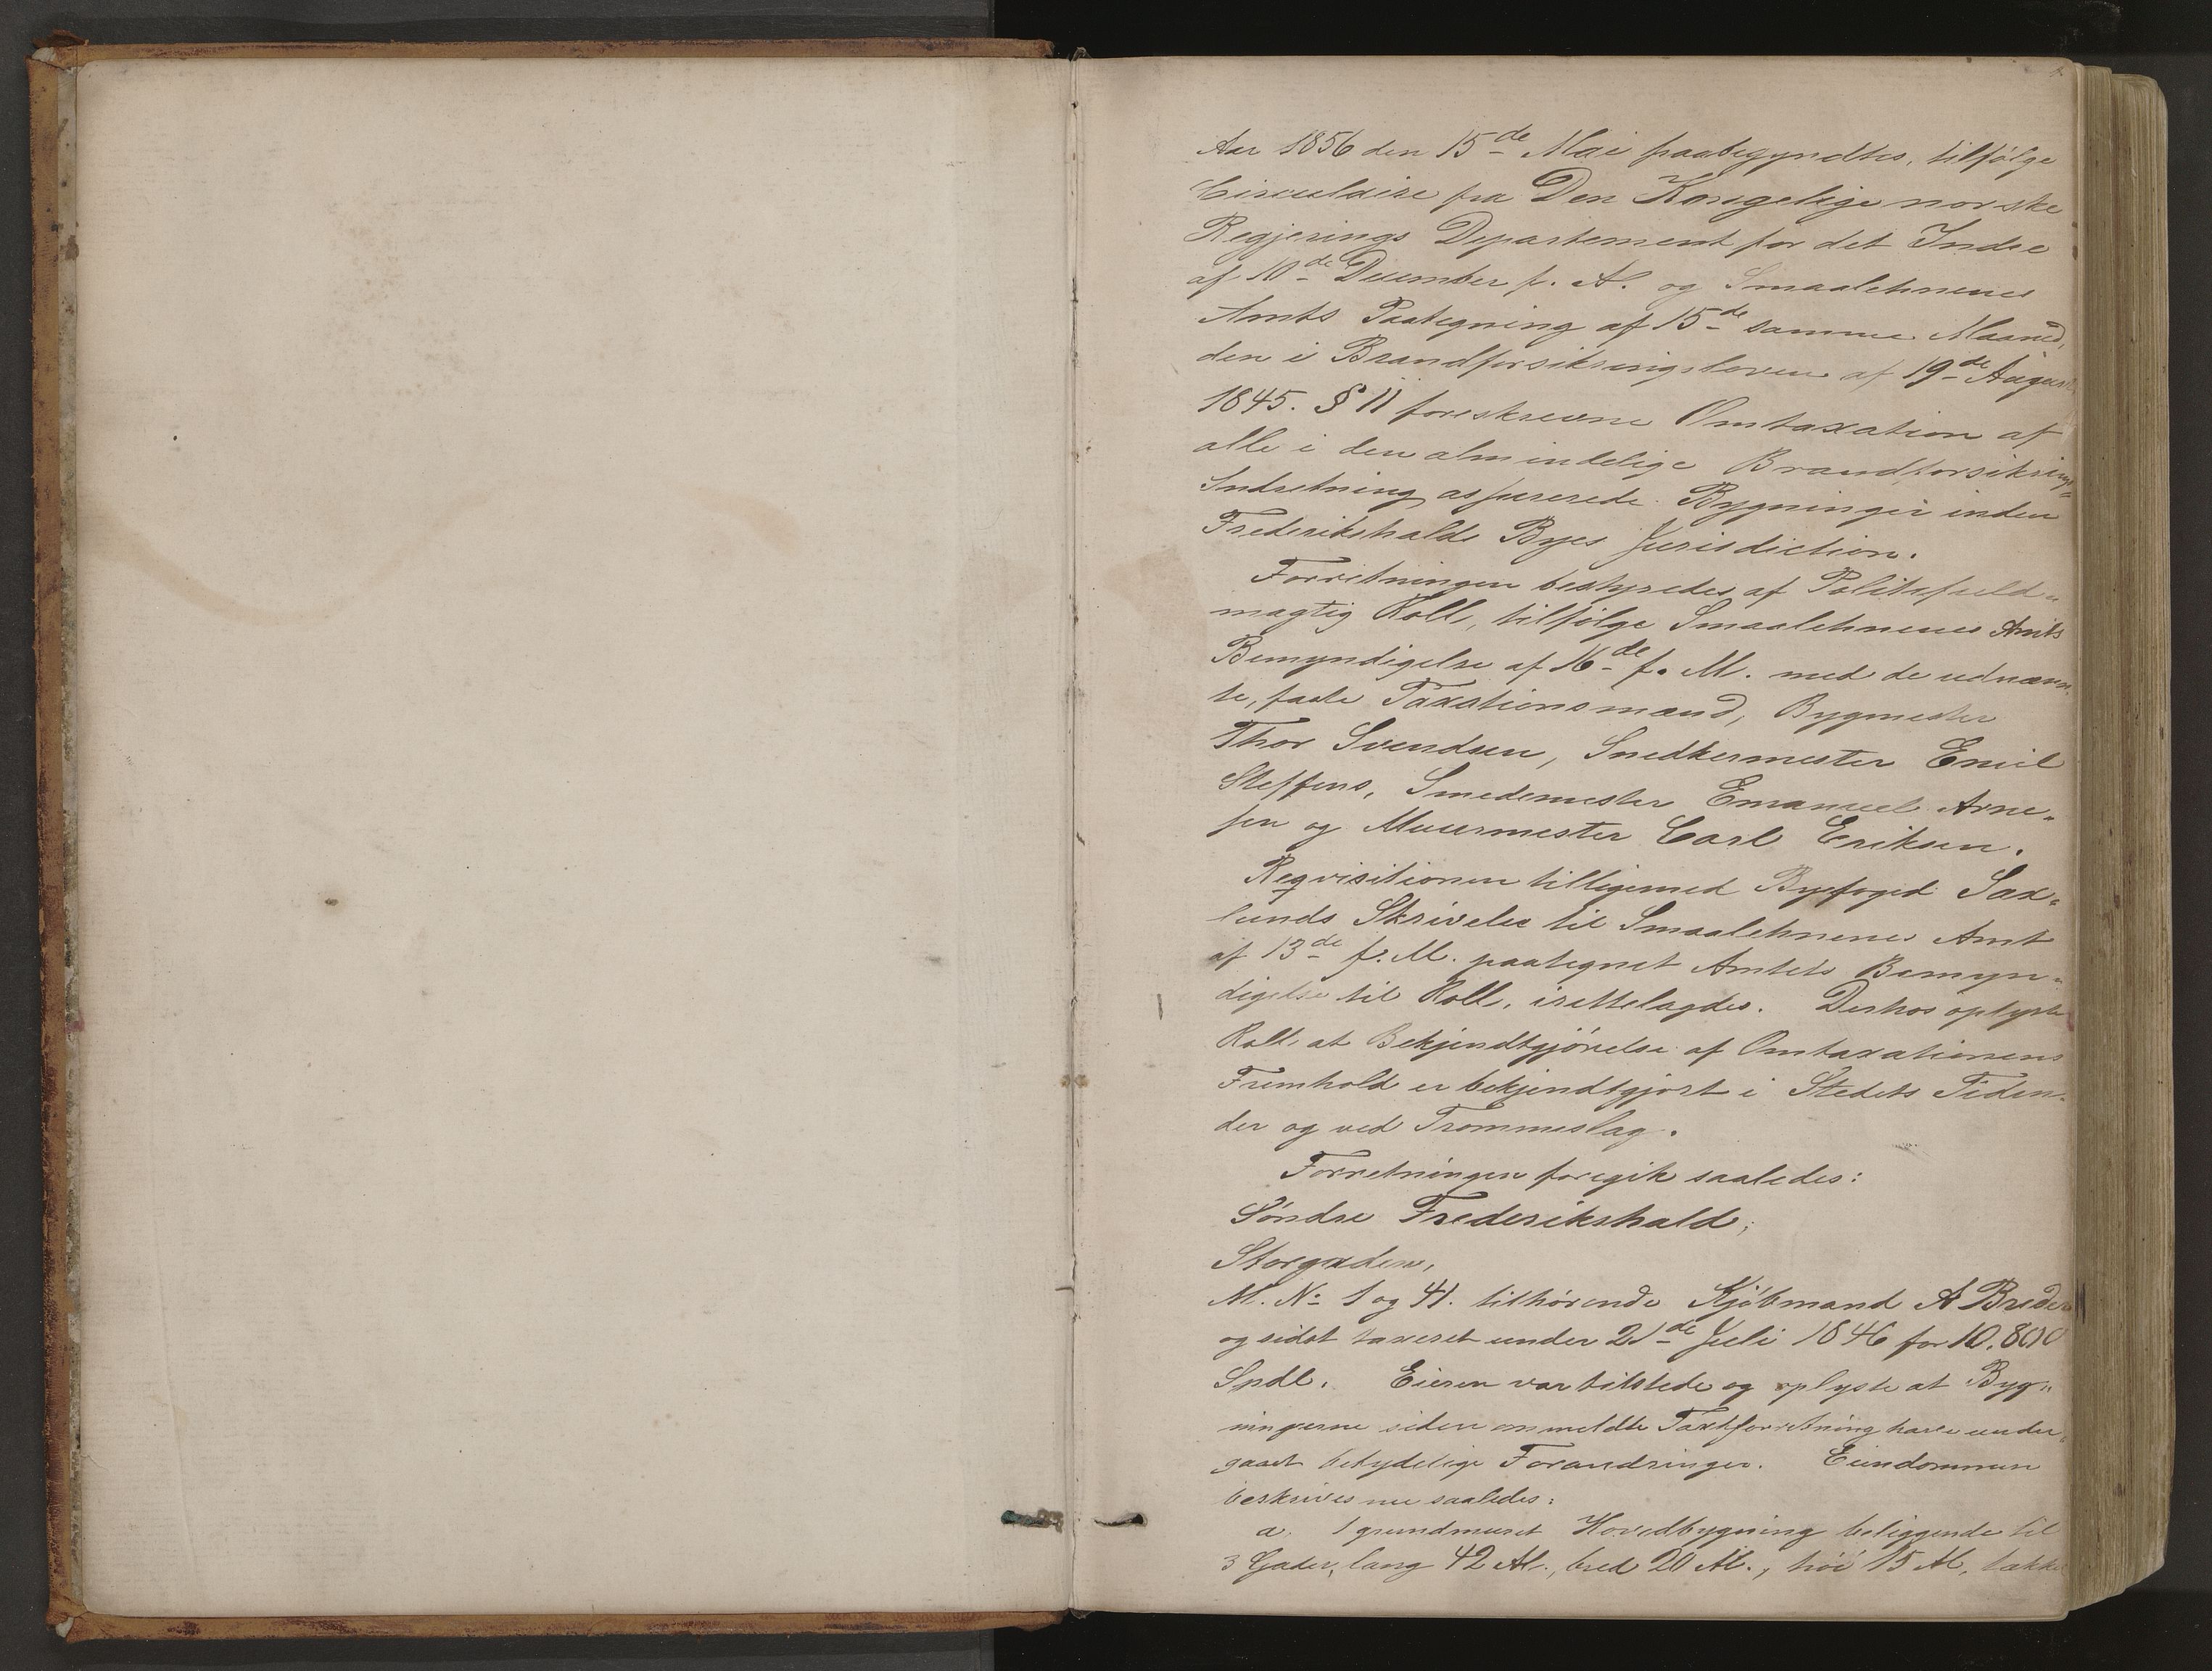 Aar 1856 den 15de Mai paabegyndtes, tilfølge
Circulaire fra Den Kongelige norske
Regjerings Departement for det Indre
af 10de December f. A. og Smaalehnenes
Amts Paategning af 15de samme Maaned,
den i Brandforsikringsloven af 19de August
1845. § 11 foreskrevne Omtaxation af
alle i den almindelige Brandforsikrings-
Indretning assurerede Bygninger inden
Frederikshalds Byes Jurisdiction.
Forretningen bestyredes af Politifuld-
mægtig Roll, tilfølge Smaalehnenes Amts
Bemyndigelse af 16de f. M. med de udnævn-
te, faste Taxationsmænd, Bygmester
Thor Svendsen, Snedkermester Emil
Steffens, Smedemester Emanuel Arne-
sen og Muurmester Carl Eriksen.
Reqvisitionen tilligemed Byefoged Sax-
lunds Skrivelse til Smaalehnenes Amt
af 13de f. M. paategnet Amtets Bemyn-
digelse til Roll, irettelagdes. Derhos oplyste
Roll, at Bekjendtgjørelse af Omtaxationens
Fremhold er bekjendtgjort i Stedets Tiden-
der og ved Trommeslag.
Forretningen foregik saaledes:
Søndre Frederikshald,
Storgaden,
M. No 1 og 41. tilhørende Kjøbmand A Breder
og sidst taxeret under 21de Juli 1846 for 10.800
Spdl. Eieren var tilstede og oplyste at Byg-
ningerne siden ommeldte Taxtforretning have under-
gaaet betydelige Forandringer. Eiendommen
beskrives nu saaledes:
a, 1 grundmuret Hovedbygning beliggende til
3 Gader, lang 42 Al., bred 20 Al., høi 15 Al, tækket